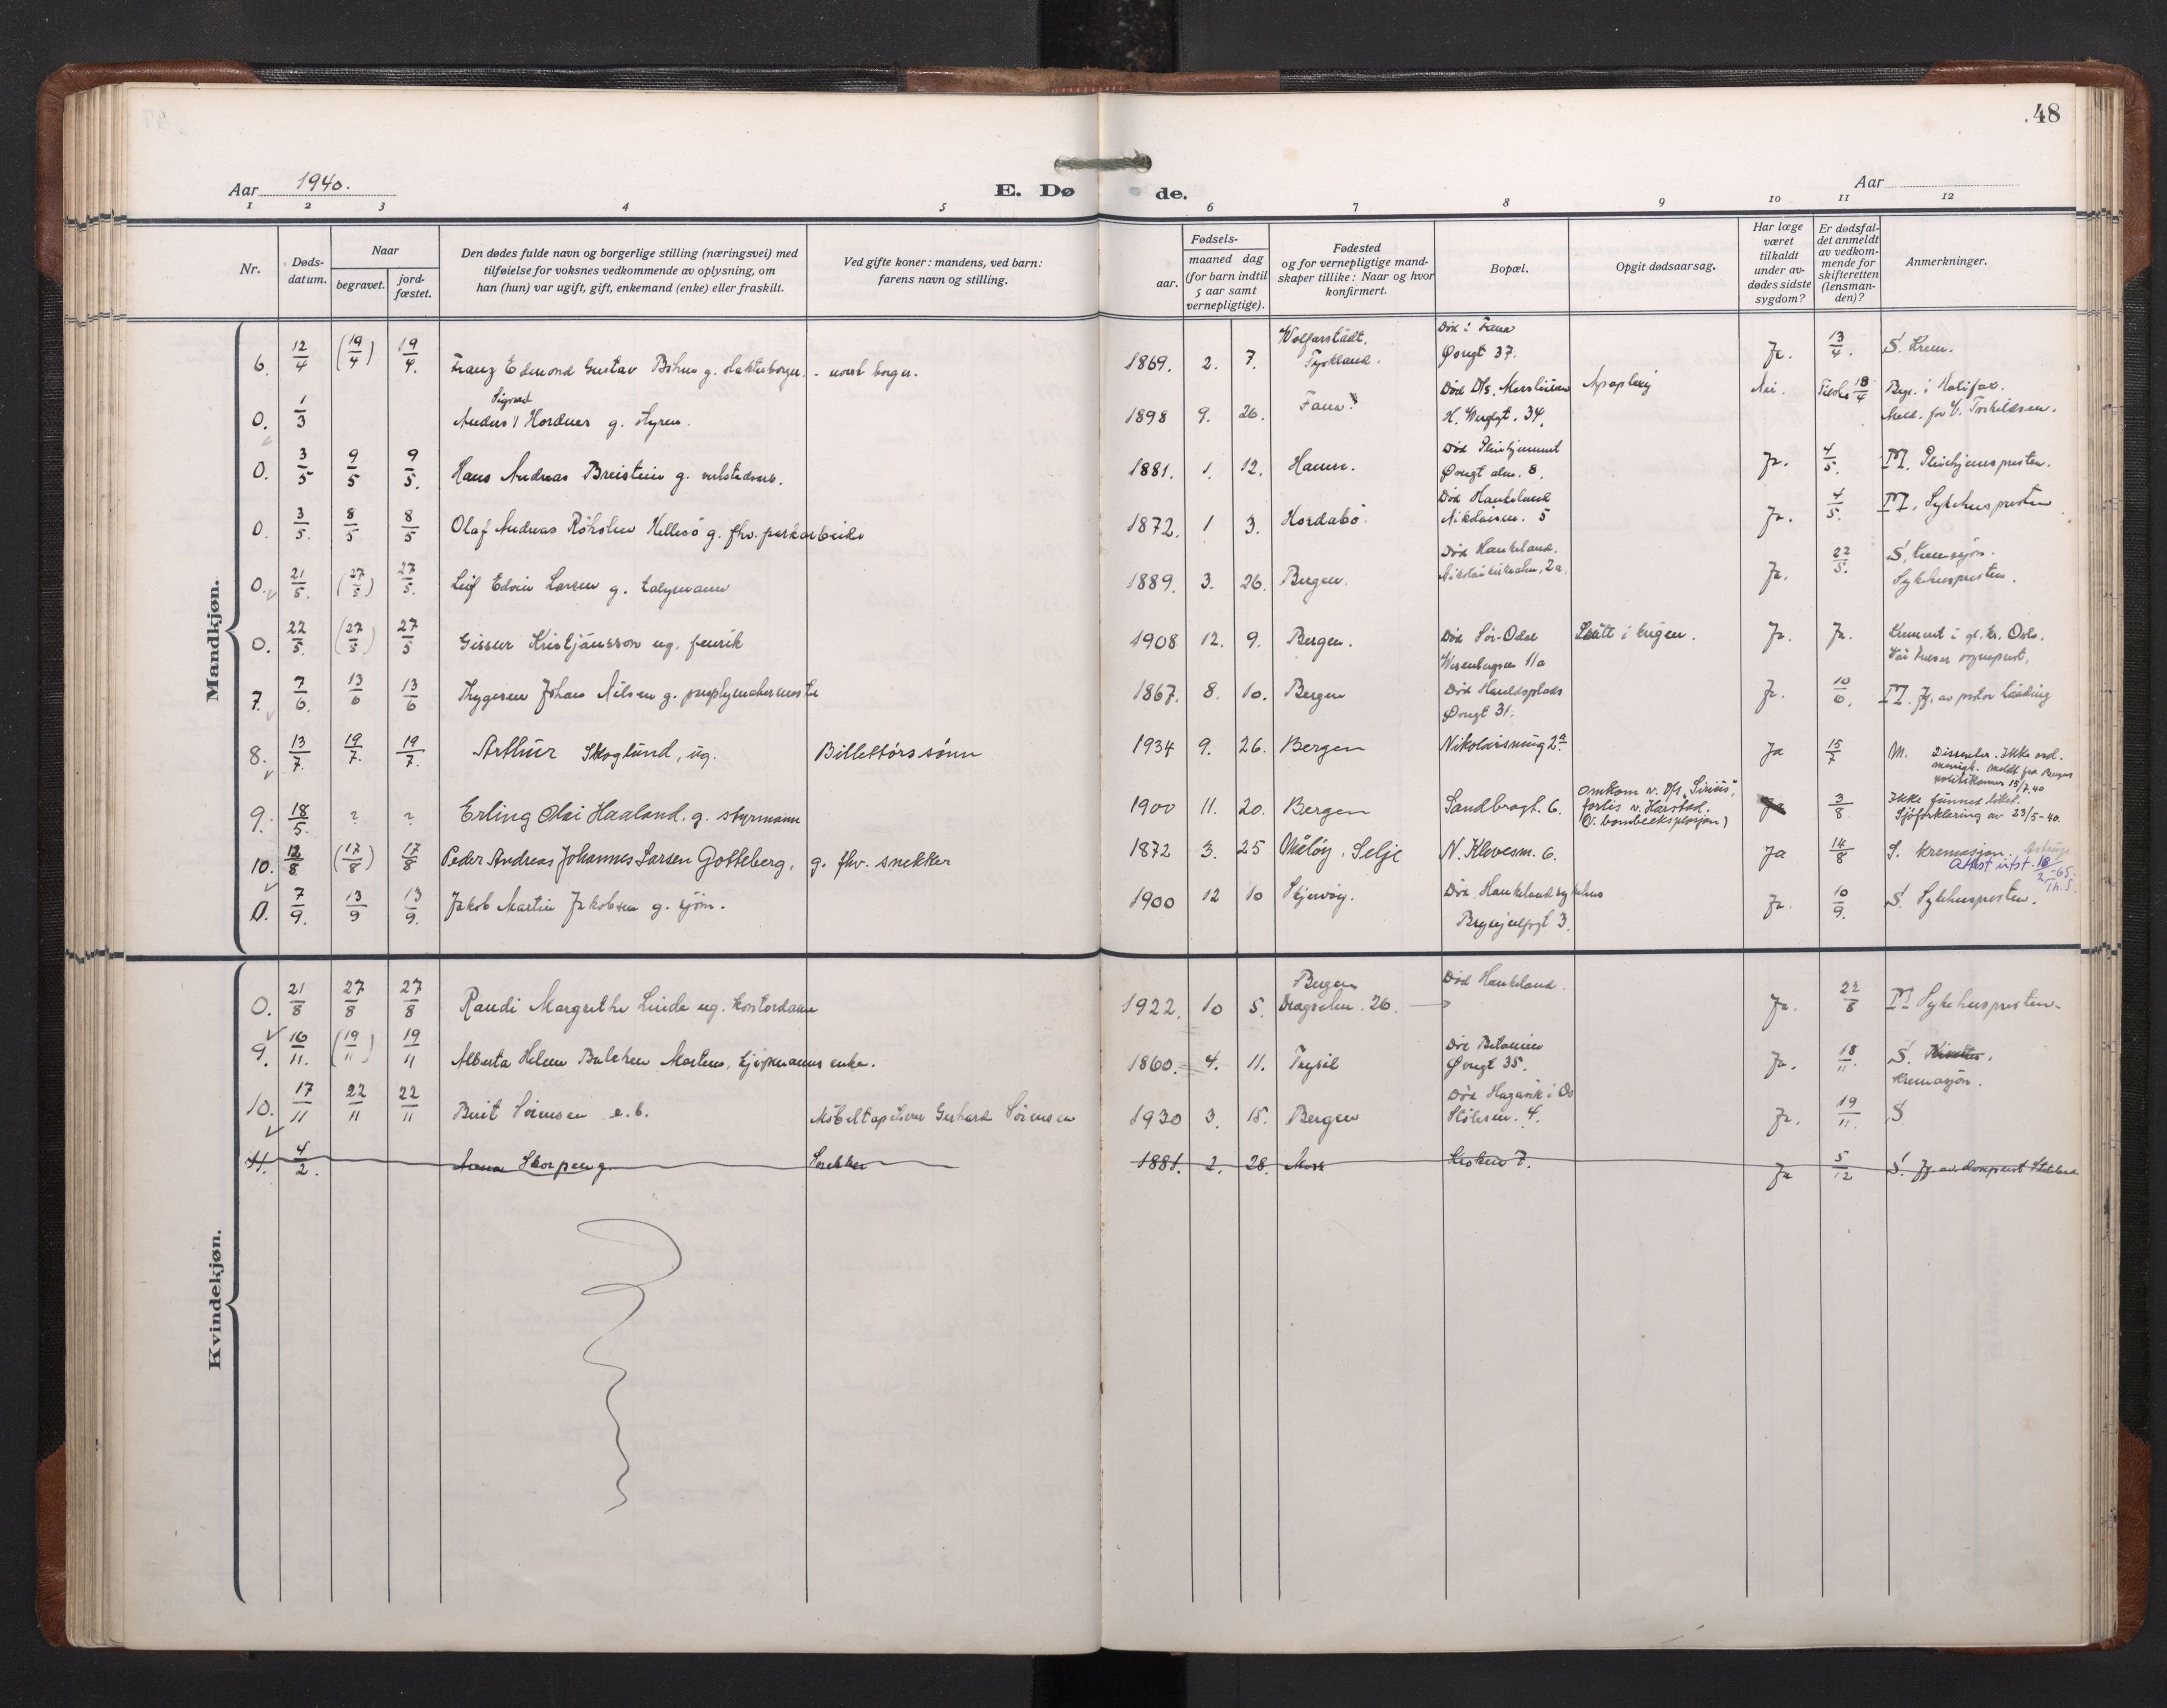 48
Aar 1940.
E. Døde.
Aar
1 2 3 4 5 6 7 8 9 10 11 12
Nr.
Døds-datum.
Naar
begravet.
jord-fæstet.
Den dødes fulde navn og borgerlige stilling (næringsvei) med
tilføielse for voksnes vedkommende av oplysning, om
han (hun) var ugift, gift, enkemand (enke) eller fraskilt.
Ved gifte koner: mandens, ved barn:
farens navn og stilling.
Fødsels-
aar.
maaned dag
(for barn indtil
5 aar samt
vernepligtige).
Fødested
og for vernepligtige mand-
skaper tillike: Naar og hvor
konfirmert.
Bopæl.
Opgit dødsaarsag.
Har læge
været
tilkaldt
under av-
dødes sidste
sygdom?
Er dødsfal-
det anmeldt
av vedkom-
mende for
skifteretten
(lensman-
den)?
Anmerkninger.
Mandkjøn.
6. 12/4 (19/4) 19/4. Franz Edmond Gustav Böhme g. - norsk borger. 1869. 2. 7. Wolfarstädt, Tyskland. Død i Fana Øvregt 37. Ja. 13/4. S. Krem.
0. 1/3 Anders Sigurd Hordnes g. styrm. 1898 9. 26. Fana. Død D/s. H. Wergegt. 34. Apoplexi Nei. 18/4 Begr. i Halifax. Meld. fra V. Torkildsen.
0. 3/5 9/5 9/5. Hans Andreas Breistein g. verkstedsarb. 1881. 1. 12. Hamre. Død Pleiehjemmet Øvregt alm. 8. Ja. 4/5. M. Pleiehjemspresten.
0. 3/5. 8/5 8/5 Olaf Andreas Røksten Hellesø g. fhv. parkarbeider 1872. 1 3. Hordabø. Død Haukeland Nikolaism. 5 Ja. 4/5. M. Sykehuspresten
0. 21/5. (27/5) 27/5. Leif Edvin Larsen g. talymann 1889. 3. 26. Bergen. Død Haukeland. Nikolaikirkealm. 2a. Ja. 22/5. S. Kremasjon. Sykehuspresten.
0. 22/5. (27/5) 27/5 Gissur Kristjánsson ug. fenrik 1908 12. 9. Bergen. Død Sør-Odal Wesenbergsm 11a Skutt i krigen. Ja. Ja. Kremert i gl. kr. Oslo. Vår Frelser sogneprest.
7. 7/6. 13/6 13/6 Thygesen Johans Nilsen g. 1867. 8. 10. Bergen Død Haraldsplads Øvregt 31. Ja. 10/6. M. Jf. av pastor
8. 13/7. 19/7. 19/7. Arthur Skoglund, ug. Billettørs sønn 1934 9. 26. Bergen Nikolaismug 2a Ja 15/7 M. Dissenter. Ikke ord. menigh. Meldt fra Bergens politikammer 15/7. 40
9. 18/5. ? ? Erling Olai Haaland. g. styrmann 1900 11. 20. Bergen Sandbrogt. 6. Omkom v. D/s „Sirius", forlis v. Harstad. (V. bombeeksplosjon) 3/8 Ikke funnet liket. Sjøforklaring av 23/5-40.
10. 12/8 (17/8) 17/8 Peder Andreas Johannes Larsen Gotteberg, g. fhv. snekker 1872 3. 25 Måløy, Selje N. Klevesm. 6. Ja 14/8 S. kremasjon. Attest utst. 18/2-65. Th. S.
0. 7/9. 13/9 13/9. Jakob Martin Jakobsen g. sjøm. 1900 12 10 Skjervøy. Død Haukeland sykehus 3. Ja. 10/9. S. Sykehuspresten.
Kvindekjøn.
0. 21/8 27/8 27/8 Randi Margrethe Linde ug. kontordame 1922. 10 5. Bergen Dragealm. 26. Død Haukeland. Ja. 22/8 M Sykehuspresten.
9. 16/11. (19/11) 19/11 Alberta Helene Balchen Martens, kjøpmanns enke. 1860. 4. 11. Trysil Død Betanien Øvregt 35. Ja. 18/11. S. Kremasjon.
10. 17/11 22/11 22/11 Berit Sørensen e.b. Møbeltapetserer Gerhard Sørensen 1930 3. 15. Bergen Død Hagavik i Os Stølesm. 4. Ja. 19/11. S.
11. 4/2. Anna Skorpen g. Snekker 1881. 2. 28. Moss Kroken 7. Ja 5/12 S. Jf. av domprost